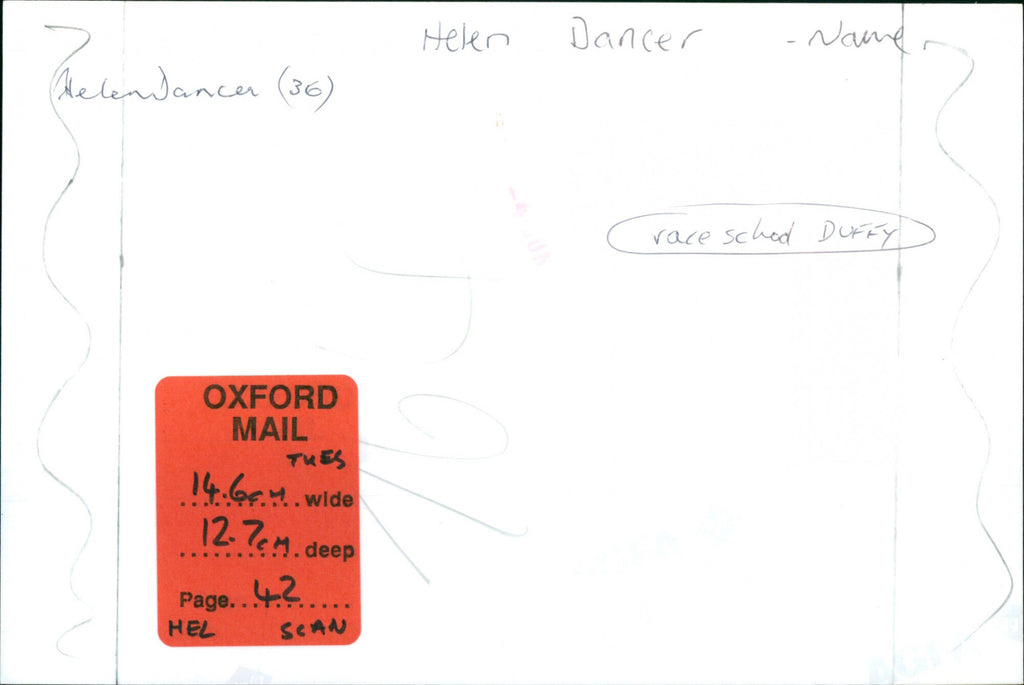 Helen Dancer - Name
Helen Dancer (36)
race school DUFFY
OXFORD
MAIL
TUES
14.6cM wide
12.7cM deep
Page 42
HEL SCAN